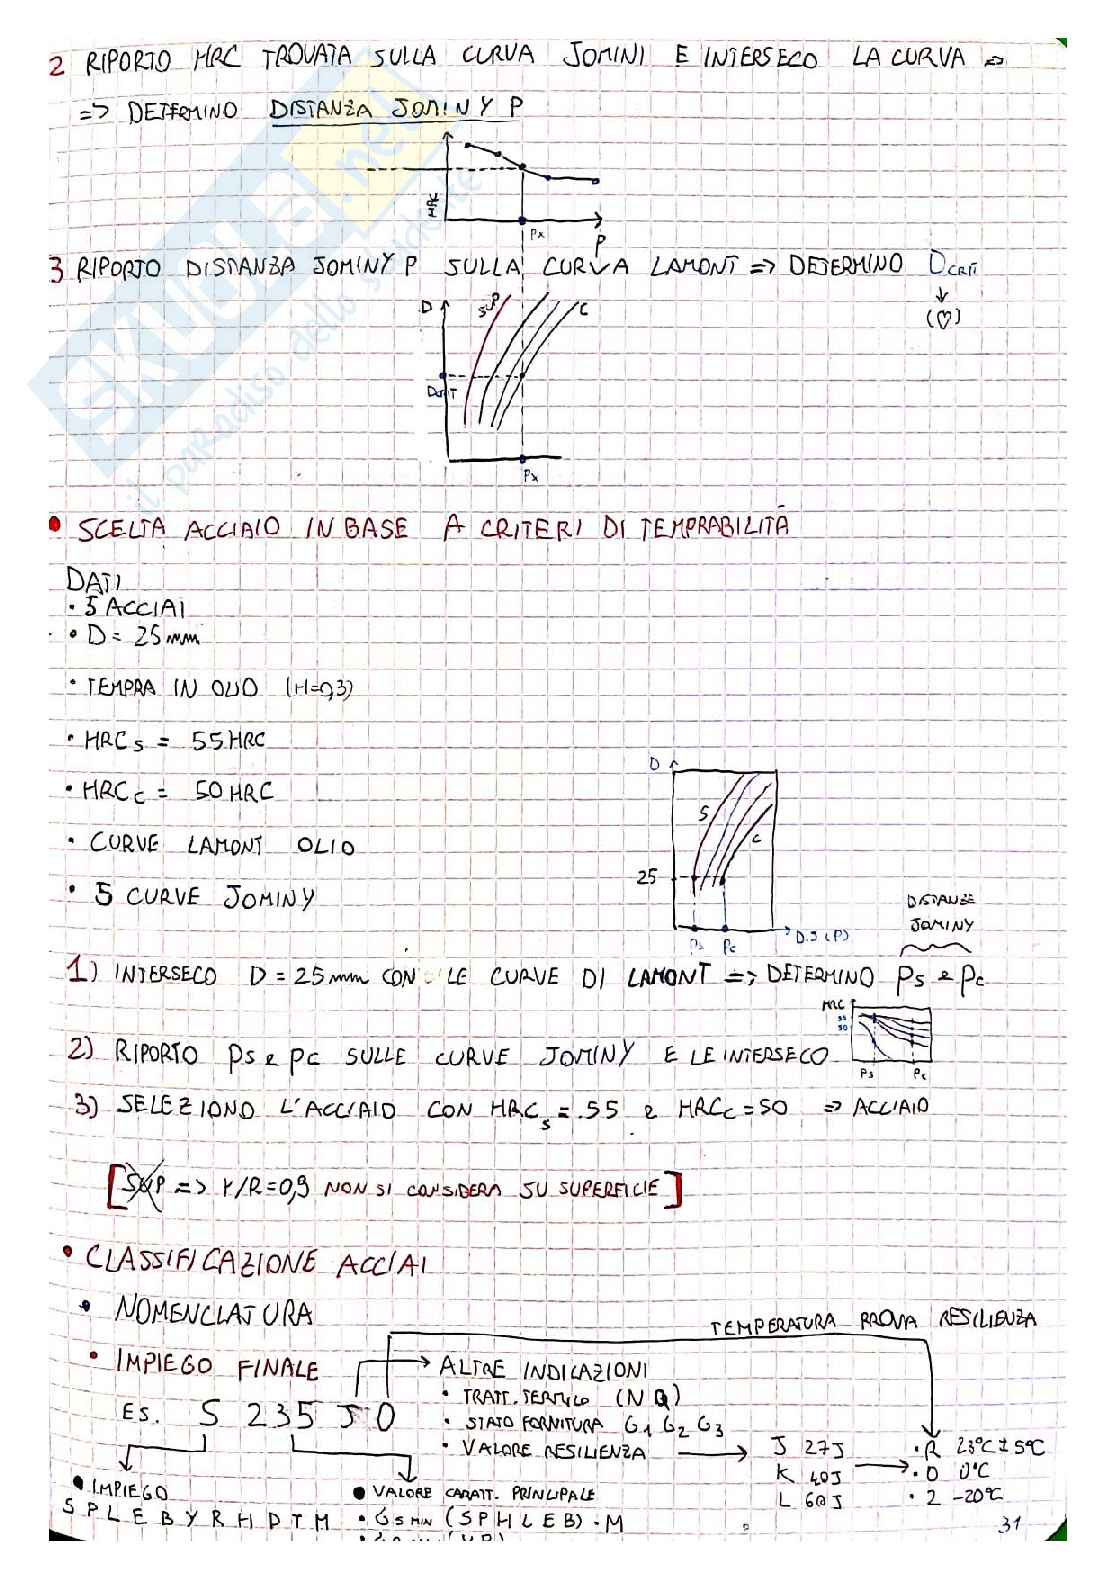 2 RIPORTO HRC TROVATA SULLA CURVA JOMINI E INTERSECO LA CURVA =>
=> DETERMINO DISTANZA JOMINY P
HRC
Px
P
3 RIPORTO DISTANZA JOMINY P SULLA CURVA LAMONT => DETERMINO DCRIT
(♡)
D
SUP
C
DCRIT
Px
• SCELTA ACCIAIO IN BASE A CRITERI DI TEMPRABILITÀ
DATI
• 5 ACCIAI
• D = 25 mm
• TEMPRA IN OLIO (H=0,3)
• HRCs = 55 HRC
• HRCc = 50 HRC
• CURVE LAMONT OLIO
• 5 CURVE JOMINY
D
S
C
25
Ps Pc
D.J (P)
DISTANZE
JOMINY
1) INTERSECO D = 25mm CON LE CURVE DI LAMONT => DETERMINO Ps e Pc
HRC
55
50
Ps Pc
2) RIPORTO Ps e Pc SULLE CURVE JOMINY E LE INTERSECO
3) SELEZIONO L'ACCIAIO CON HRCs = 55 e HRCc = 50 => ACCIAIO
[SUP => r/R=0,9 NON SI CONSIDERA SU SUPERFICIE]
• CLASSIFICAZIONE ACCIAI
• NOMENCLATURA
TEMPERATURA PROVA RESILIENZA
• IMPIEGO FINALE
ALTRE INDICAZIONI
• TRATT. TERMICO (N Q)
ES. S 235 J 0
• STATO FORNITURA G1 G2 G3
• VALORE RESILIENZA
J 27J
K 40J
L 60J
• R 23°C ± 5°C
• 0 0°C
• 2 -20°C
• IMPIEGO
S P L E B Y R H D T M
• VALORE CARATT. PRINCIPALE
• σs MIN (S P H L E B) - M
31
SKUOLA.net
il paradiso dello studente